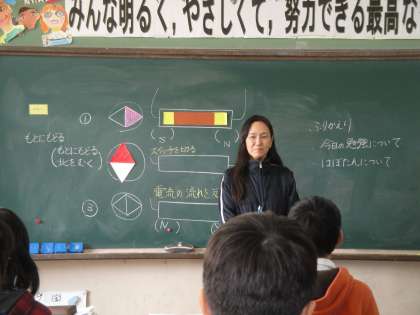 みんな明るく，やさしくて，努力できる最高な
①
もとにもどる
(もとにもどる,
(北をむく)
(S)
(N)
スイッチを切る
電流の流れを反
③
(N)
(S)
ふりかえり
今日の勉強について
はばたんについて